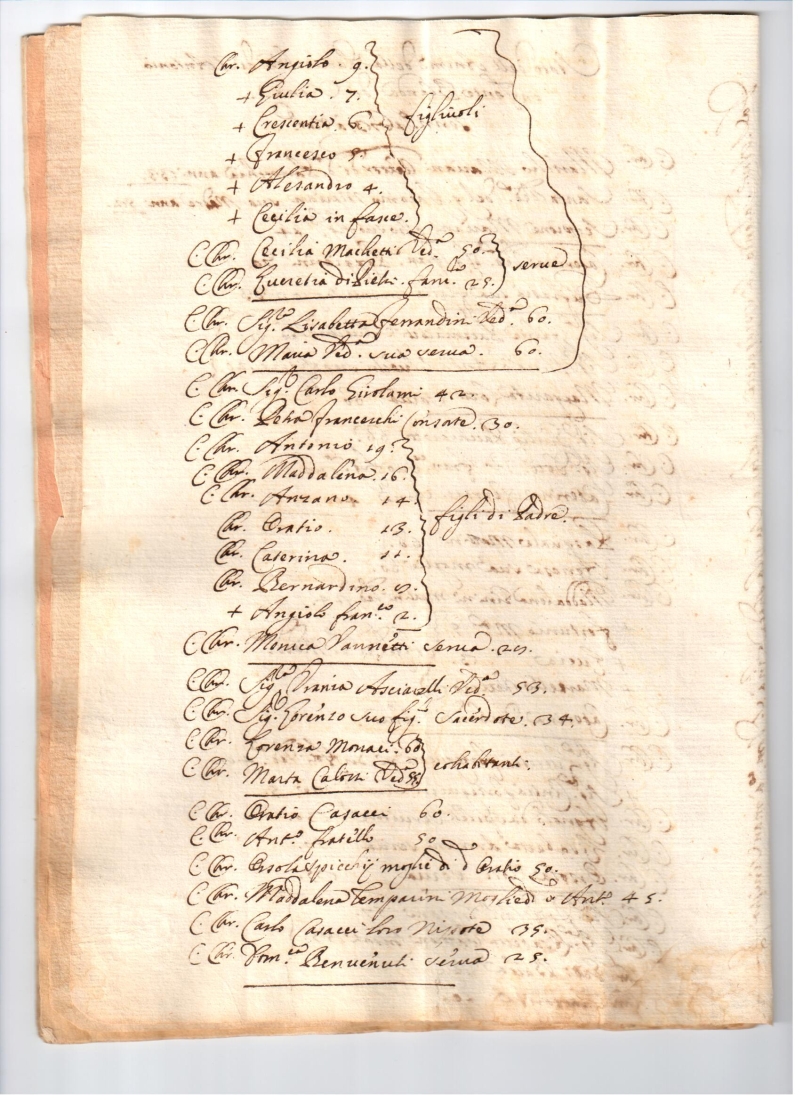 Chr. Angiolo. 9.
+ Giulia. 7.
+ Crescentia. 6. figlivoli
+ francesco 5.
+ Alesandro 4.
+ Cecilia in fasce.
C. Chr. Cecilia Machetti Ved.ª 50.
C. Chr. Lucretia di Pietri. fanc.ª 25. serue
C. Chr. Sig.ra Lisabetta ferrandini Ved.ª 60.
C. Chr. Maria Ved.ª sua serua. 60.
C. Chr. Sig.r Carlo Girolami 42.
C. Chr. Petra franceschi Consorte. 30.
C. Chr. Antonio 19.
C. Chr. Maddalena. 16.
C. Chr. Anzano. 14. figli di Padre.
Chr. Oratio. 13.
Chr. Caterina. 11.
Chr. Bernardino. 9.
+ Angiolo fran.co 2.
C. Chr. Monica Vannetti serua. 29.
C. Chr. Sig.ra Urania Asciarelli Ved.ª 53.
C. Chr. Sig.r Lorenzo suo fig.o Sacerdote. 34.
C. Chr. Lorenza Monaci. 60 cohabitanti.
C. Chr. Marta Ved.ª
C. Chr. Oratio Casacci 60.
C. Chr. Ant.o fratello 50
C. Chr. Orsola Spicchij moglie di d.o Oratio 50.
C. Chr. Maddalena Temparini Ant.o 45.
C. Chr. Carlo Casacci loro Nipote 35.
C. Chr. Dom.ca Benvenuti serua 25.